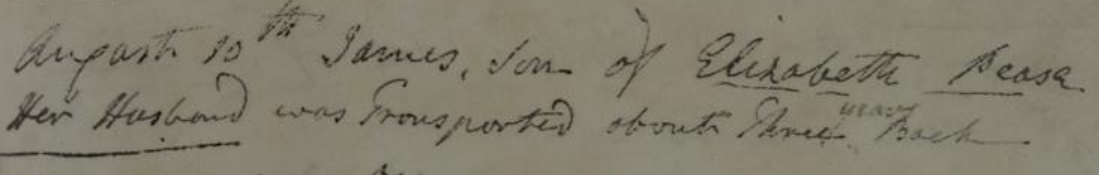 August 10th James, Son of Elizabeth Pease
Her Husband was Transported about Three years Back